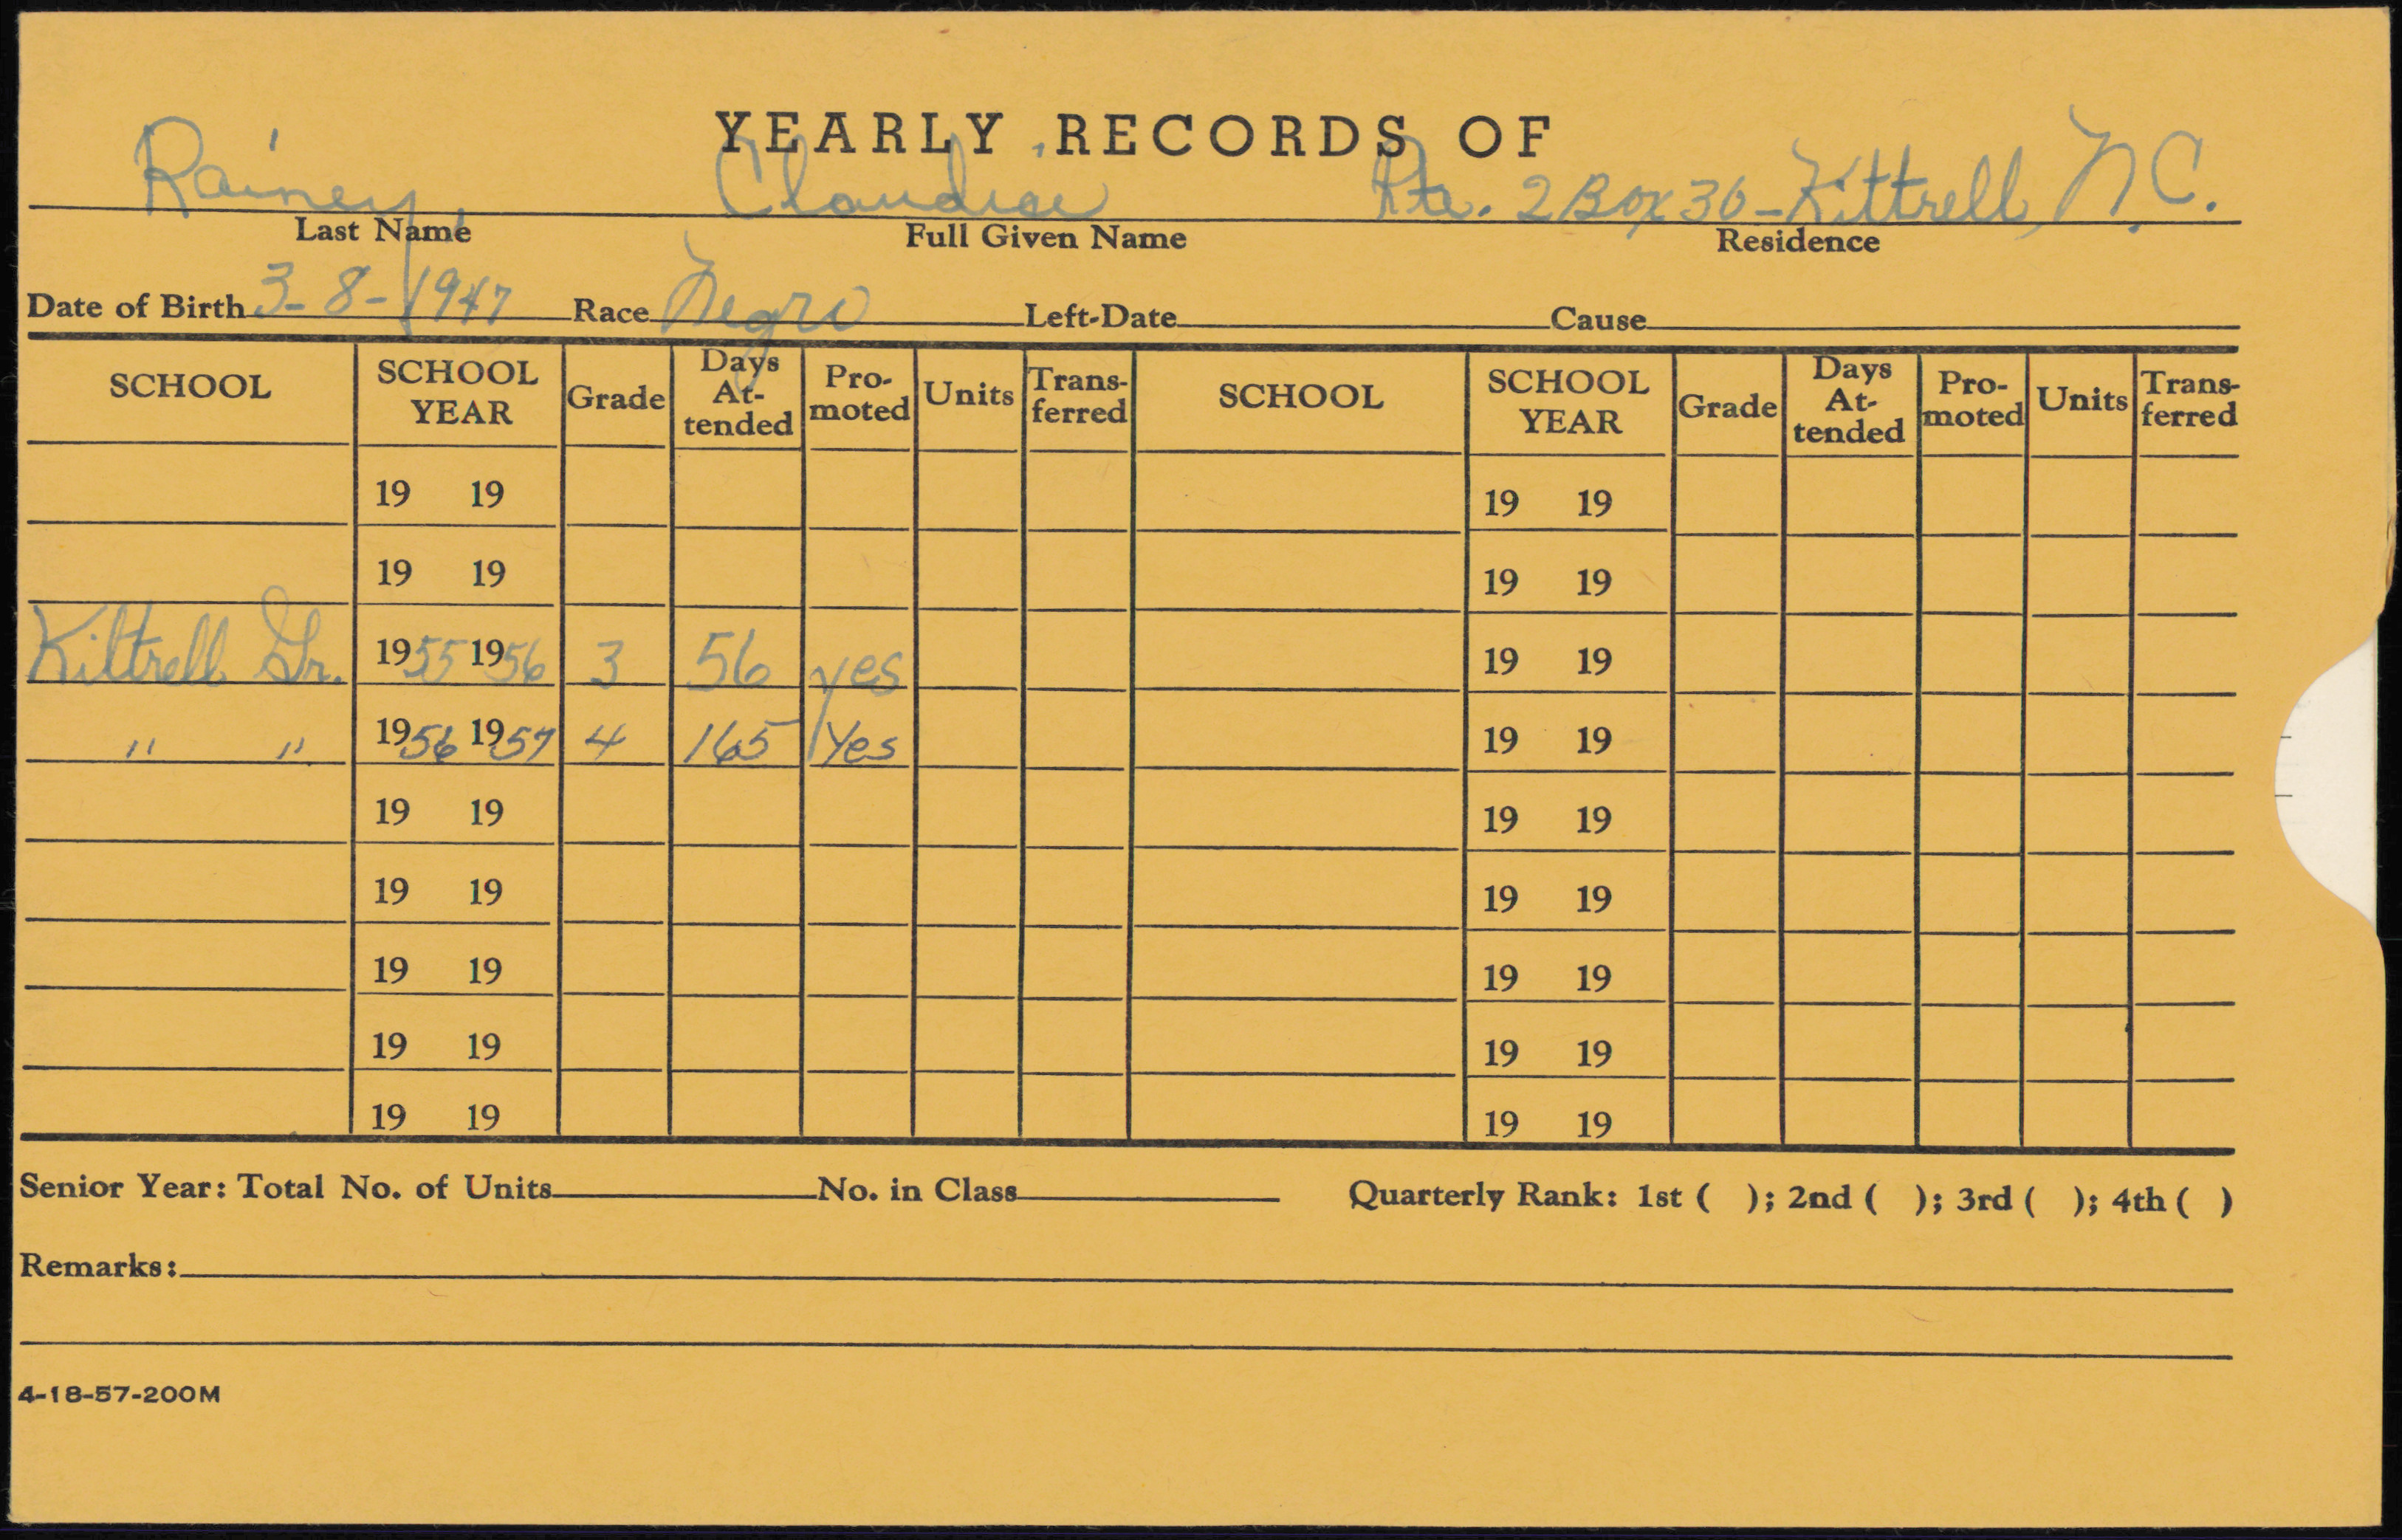 YEARLY RECORDS OF
Rainey, Claudice Rte. 2 Box 36 - Kittrell, N.C.
Last Name Full Given Name Residence
Date of Birth 3-8-1947 Race Negro Left-Date Cause
SCHOOL SCHOOL YEAR Grade Days At-tended Pro-moted Units Trans-ferred SCHOOL SCHOOL YEAR Grade Days At-tended Pro-moted Units Trans-ferred
19 19 19 19
19 19 19 19
Kittrell Gr. 1955 1956 3 56 yes 19 19
" " 1956 1957 4 165 Yes 19 19
19 19 19 19
19 19 19 19
19 19 19 19
19 19 19 19
19 19 19 19
Senior Year: Total No. of Units No. in Class Quarterly Rank: 1st ( ); 2nd ( ); 3rd ( ); 4th ( )
Remarks:
4-18-57-200M